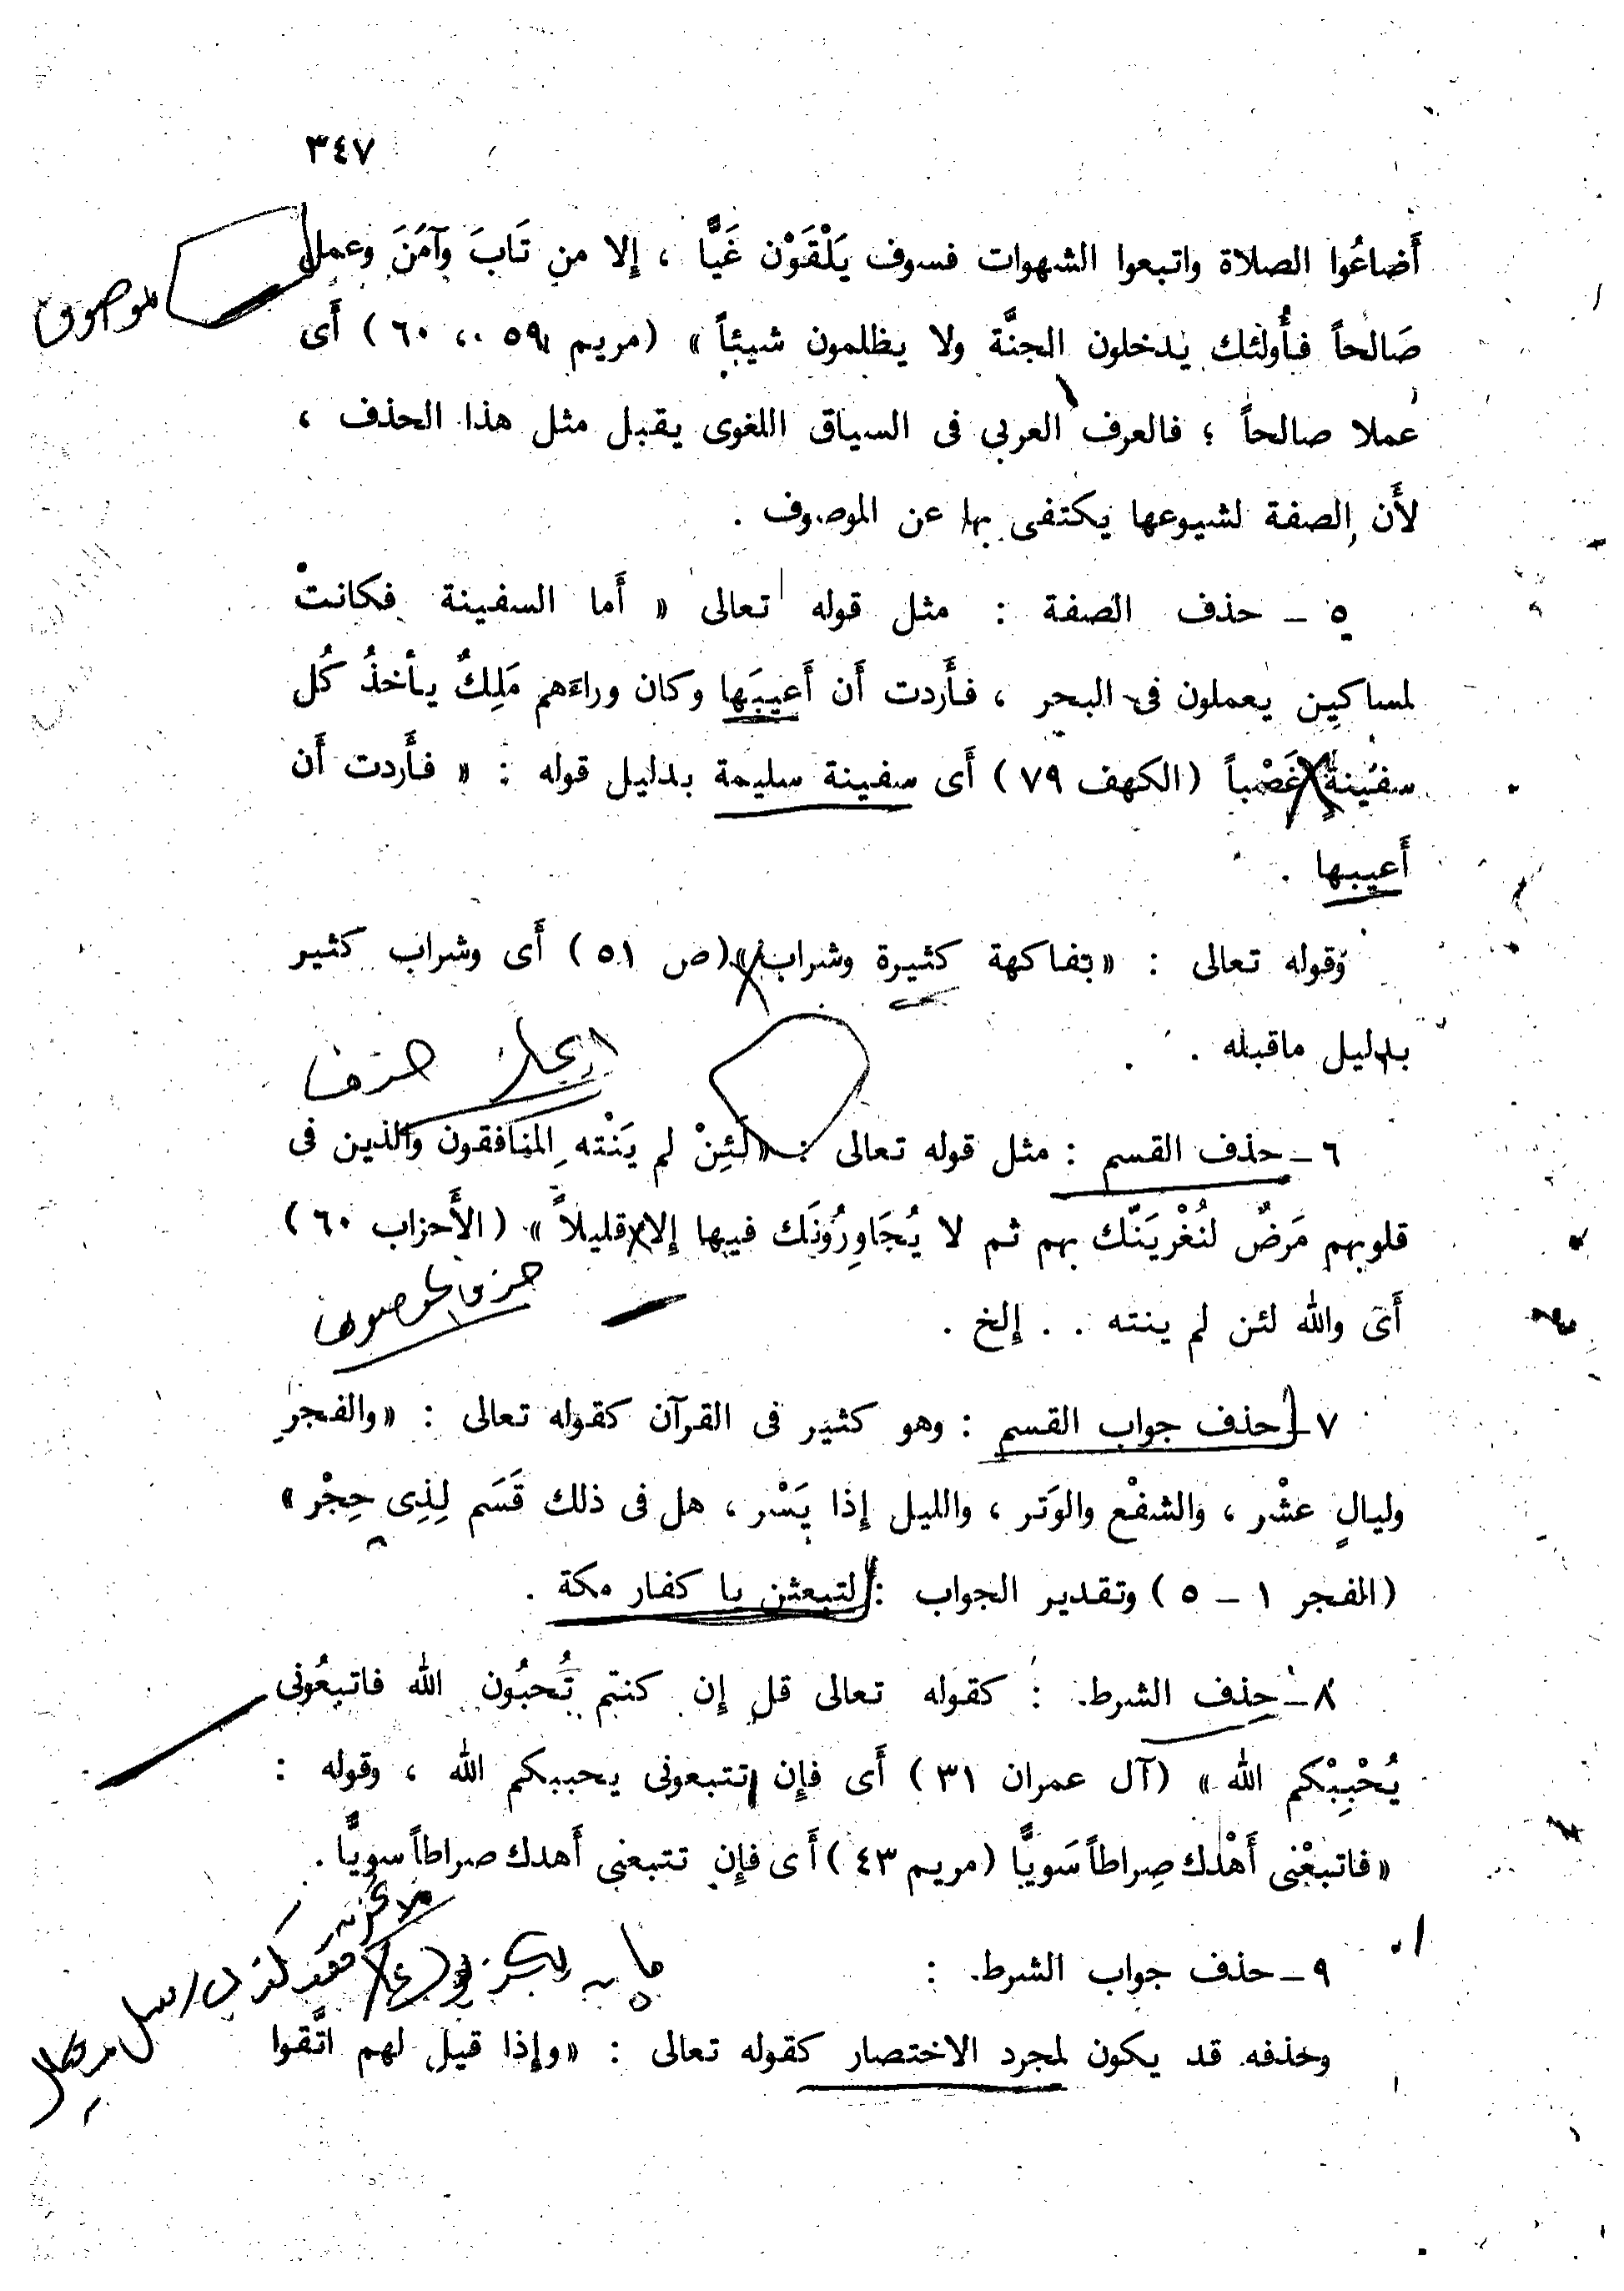 ٣٤٧
أَضاعُوا الصلاة واتبعوا الشهوات فسوف يَلْقَوْن غَيًّا ، إلا من تَابَ وَآمَنَ وعمل
موصوف
صَالحاً فأُولئك يدخلون الجنَّة ولا يظلمون شيئاً » (مريم ٥٩ ، ٦٠ ) أَى
عملا صالحاً ؛ فالعرف العربى فى السياق اللغوى يقبل مثل هذا الحذف ،
لأَن الصفة لشيوعها يكتفى بها عن الموصوف .
٥ ـ حذف الصفة : مثل قوله تعالى « أَما السفينة فكانتْ
لمساكين يعملون فى البحر ، فأَردت أَن أَعيبَها وكان وراءَهم مَلِكٌ يأخذُ كُل
سفينةٍ غَصْباً (الكهف ٧٩ ) أَى سفينة سليمة بدليل قوله : « فأَردت أَن
أَعيبها .
وقوله تعالى : «بفاكهة كثيرة وشراب» (ص ٥١ ) أَى وشراب كثير
بدليل ماقبله .
حذف
٦ ـ حذف القسم : مثل قوله تعالى : «لَئِنْ لم يَنْته المنافقون والذين فى
قلوبهم مَرضٌ لنُغْرِيَنَّك بهم ثم لا يُجَاوِرُونَك فيها إلا قليلاً » (الأَحزاب ٦٠ )
أَى والله لئن لم ينته . . إلخ .
٧ ـ حذف جواب القسم : وهو كثير فى القرآن كقوله تعالى : «والفجرِ
وليالٍ عشْر ، والشفْع والوَتر ، والليل إذا يَسْر ، هل فى ذلك قَسَم لِذِى حِجْر »
(الفجر ١ ـ ٥ ) وتقدير الجواب : لتبعثن يا كفار مكة .
٨ ـ حذف الشرط : كقوله تعالى قل إن كنتم تُحبُون الله فاتبعُونى
يُحْبِبْكم الله » (آل عمران ٣١ ) أَى فإن تتبعونى يحببكم الله ، وقوله :
«فاتبعْنى أَهْدك صِراطاً سَويًّا (مريم ٤٣ ) أَى فإن تتبعنى أَهدك صراطاً سويًّا .
٩ ـ حذف جواب الشرط :
وحذفه قد يكون لمجرد الاختصار كقوله تعالى : «وإذا قيل لهم اتَّقوا